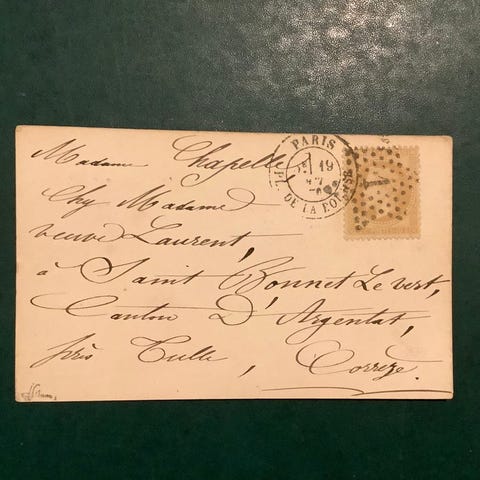 Madame Chapelle
Chy Madame
veuve Laurent,
à Saint Bonnet Le vert,
Canton D'Argentat,
près Tulle, Corrèze.
PARIS
19
PL. DE LA BOURSE
1